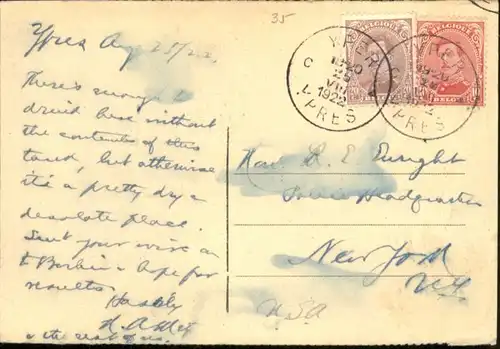 35
Ypres Aug 25/22.
There's enough to
drink here without
the contents of this
tank, but otherwise
it's a pretty dry &
desolate place.
Sent your wire on
to Berlin & hope for
results
Hastily
& the rest of us.
Hon. R. E. Enright
Police Headquarters
New York
N.Y.
USA
BELGIQUE
BELGIE
YPER
1920
25
VIII
1922
YPRES
YPER
1920
1922
YPRES